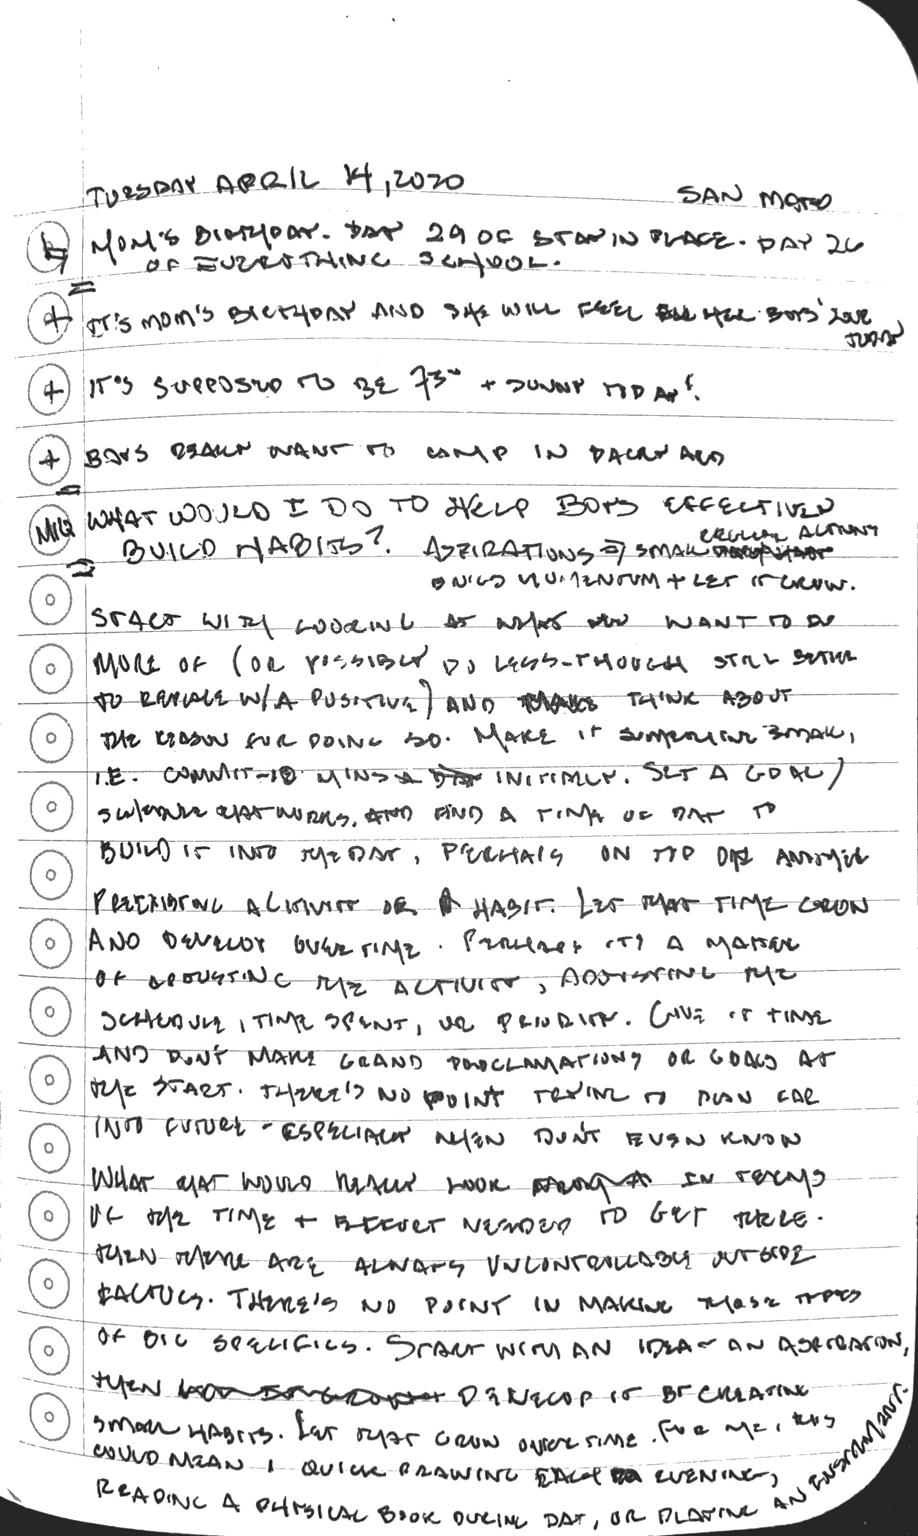 TUESDAY APRIL 14, 2020
SAN MATEO
MOM'S BIRTHDAY. DAY 29 OF STAY IN PLACE. DAY 26
OF EVERYTHING SCHOOL.
+ IT'S MOM'S BIRTHDAY AND SHE WILL FEEL HER BOYS' LOVE
TODAY
+ IT'S SUPPOSED TO BE 73° + SUNNY TODAY!
+ BOYS REALLY WANT TO CAMP IN BACKYARD
MIQ WHAT WOULD I DO TO HELP BOYS EFFECTIVELY
BUILD HABITS? ASPIRATIONS ⇒ SMALL REGULAR ACTIVITY
BUILD MOMENTUM + LET IT GROW.
START WITH LOOKING AT WHAT YOU WANT TO DO
MORE OF (OR POSSIBLY DO LESS-THOUGH STILL BETTER
TO REPLACE W/A POSITIVE) AND THINK ABOUT
THE REASON FOR DOING SO. MAKE IT SMALL,
I.E. COMMIT 10 MINS A DAY INITIALLY. SET A GOAL/
SCHEDULE THAT WORKS, AND FIND A TIME OF DAY TO
BUILD IT INTO THE DAY, PERHAPS ON TOP OF ANOTHER
PREEXISTING ACTIVITY OR A HABIT. LET THAT TIME GROW
AND DEVELOP OVER TIME. PERHAPS IT'S A MATTER
OF ADJUSTING THE ACTIVITY, ADJUSTING THE
SCHEDULE, TIME SPENT, OR PRIORITY. GIVE IT TIME
AND DON'T MAKE GRAND PROCLAMATIONS OR GOALS AT
THE START. THERE'S NO POINT TRYING TO PLAN FAR
INTO FUTURE - ESPECIALLY WHEN DON'T EVEN KNOW
WHAT THAT WOULD REALLY LOOK IN TERMS
OF THE TIME + EFFORT NEEDED TO GET THERE.
THEN THERE ARE ALWAYS UNCONTROLLABLE OUTSIDE
FACTORS. THERE'S NO POINT IN MAKING THOSE TYPES
OF BIG SPECIFICS. START WITH AN IDEA - AN ASPIRATION,
THEN DEVELOP IT BY CREATING
SMALL HABITS. LET THAT GROW OVER TIME. FOR ME, THIS
COULD MEAN 1 QUICK DRAWING EACH EVENING,
READING A PHYSICAL BOOK DURING DAY, OR PLAYING AN INSTRUMENT.